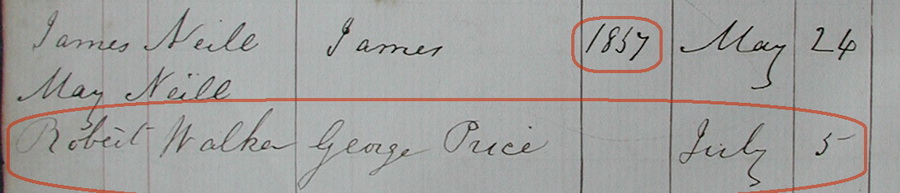 James Neill James 1857 May 24
May Neill
Robert Walker George Price July 5